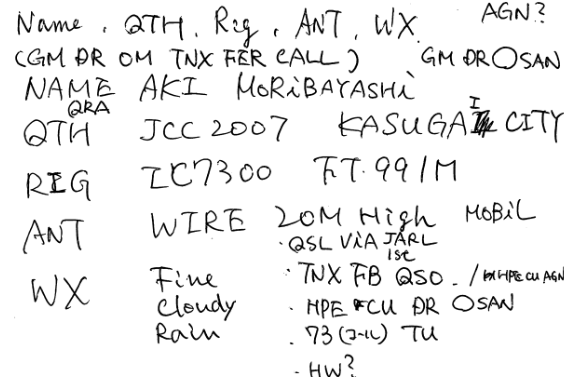 Name, QTH, Rig, ANT, WX AGN?
(GM DR OM TNX FER CALL) GM DR ○SAN
NAME AKI MORiBAYASHi
QRA
QTH JCC 2007 KASUGAI CITY
RIG IC7300 FT.991M
ANT WIRE 20M High MOBiL
・QSL ViA JARL
ISE
WX Fine ・TNX FB QSO. / HPE CU AGN
Cloudy ・HPE CU DR ○SAN
Rain ・73 TU
・HW?